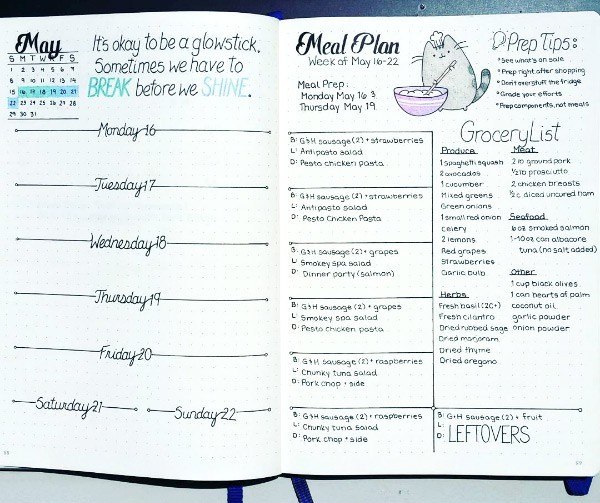 May
S M T W T F S
1 2 3 4 5 6 7
8 9 10 11 12 13 14
15 16 17 18 19 20 21
22 23 24 25 26 27 28
29 30 31
It's okay to be a glowstick.
Sometimes we have to
BREAK before we SHINE.
Monday 16
Tuesday 17
Wednesday 18
Thursday 19
Friday 20
Saturday 21
Sunday 22
58
Meal Plan
Week of May 16-22
Meal Prep:
Monday May 16 &
Thursday May 19
Prep Tips:
*See what's on sale
*Prep right after shopping
*Don't overstuff the fridge
*Grade your efforts
*Prep components, not meals
B: G+H sausage (2) + strawberries
L: Antipasto salad
D: Pesto chicken pasta
B: G+H sausage (2) + strawberries
L: Antipasto salad
D: Pesto Chicken Pasta
B: G+H sausage (2) + grapes
L: Smokey spa salad
D: Dinner party (salmon)
B: G+H sausage (2) + grapes
L: Smokey spa salad
D: Pesto chicken pasta
B: G+H sausage (2) + raspberries
L: Chunky tuna salad
D: Pork chop + side
B: G+H sausage (2) + raspberries
L: Chunky tuna salad
D: Pork chop + side
B: G+H sausage (2) + fruit
L:
D: LEFTOVERS
Grocery List
Produce
1 spaghetti squash
2 avocados
1 cucumber
Mixed greens
Green onions
1 small red onion
celery
2 lemons
Red grapes
Strawberries
Garlic bulb
Herbs
Fresh basil (2C+)
Fresh cilantro
Dried rubbed sage
Dried marjoram
Dried thyme
Dried oregano
Meat
2 lb ground pork
1/2 lb prosciutto
2 chicken breasts
1/2 c diced uncured ham
Seafood
6 oz smoked salmon
1-10oz can albacore
tuna (no salt added)
Other
1 cup black olives
1 can hearts of palm
coconut oil
garlic powder
onion powder
59